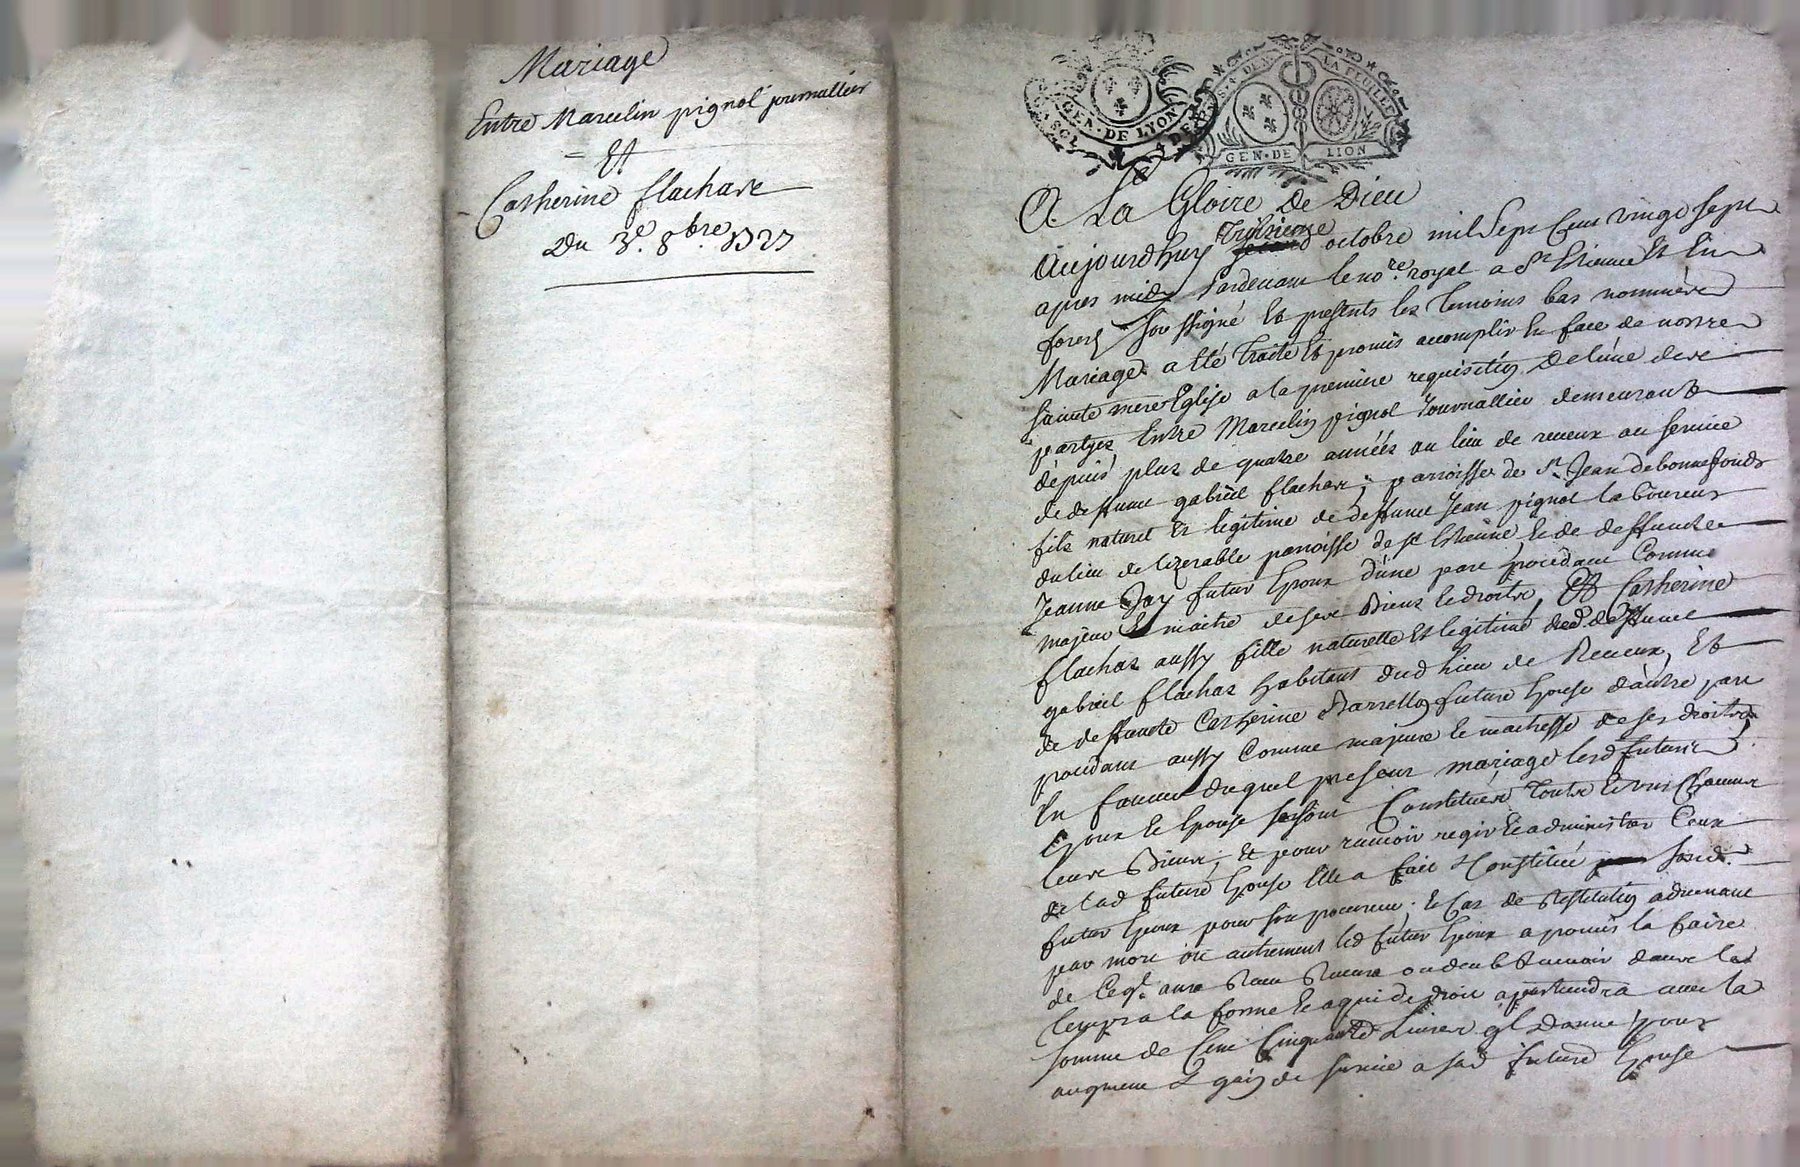 Mariage
Entre Marcelin pignol journallier
Et
Catherine flachare
Du 3e. 8bre. 1727
GEN. DE LYON
GEN. DE LION
LA FEUILLE
A La Gloire de Dieu
Aujourdhuy troisieme octobre mil Sept Cent vingt sept
apres midy Pardevant le nore. royal a St Etienne Et En
forest sousigné Et presents les temoins bas nommés
Mariage a eté traité Et promis accomplir En face de nostre
sainte mere Eglise a la premiere requisition de lune des
partyes Entre Marcelin pignol Journallier demeurant
dépuis plus de quatre années au lieu de reveux au service
de deffunt gabriel flachar, parroisse de St. Jean de bonnefonds
fils naturel Et legitime de deffunt Jean pignol laboureur
du lieu de lizerable parroisse de St Etienne et de deffuncte
Jeanne Jay futur Epoux d'une part procedant Comme
majeur Et maitre de ses Biens et droits, Et Catherine
flachar aussy fille naturelle Et legitime dud. deffunct
gabriel flachar habitant dud lieu de Reveux, Et
de deffuncte Catherine Barrellon future Epouse d'autre part
procedant aussy Comme majeure et maitresse de ses droits
En faveur duquel present mariage lesd futurs
Epoux et Epouse se sont Constitués toutes et uns Chacuns
leurs Biens, Et pour recevoir regir et administrer Ceux
de lad future Epouse Elle a fait et Constitué sond.
futur Epoux pour son procureur, le Cas de Restitution advenant
par mort ou autrement led futur Epoux a promis la faire
de Ce ql. aura Receu ou deub Recevoir dans les
temps a la forme et a qui de droit apartiendra avec la
somme de Cent Cinquante Livres ql Donne pour
augment & gain de survie a sad future Epouse